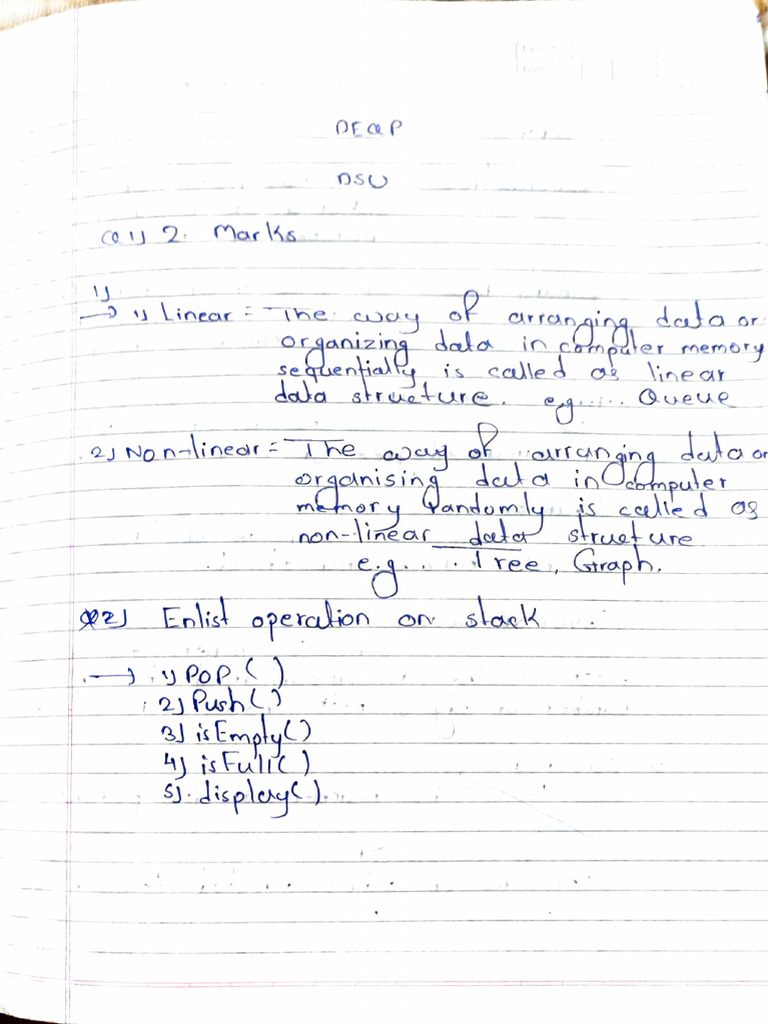 DEQP
DSU
Q 1) 2 Marks
1)
→ 1) Linear = The way of arranging data or
organizing data in computer memory
sequentially is called as linear
data structure. e.g..... Queue
2) Non-linear = The way of arranging data or
organising data in computer
memory Randomly is called as
non-linear data structure
e.g.... Tree, Graph.
Q2) Enlist operation on stack
→ 1) POP.( )
2) Push()
3) isEmpty()
4) isFull()
5). display().